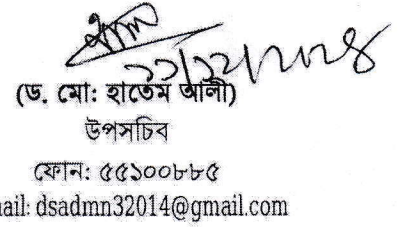 (ড. মো: হাতেম আলী)
উপসচিব
ফোন: ৫৫১০০৮৮৫
nail: dsadmn32014@gmail.com